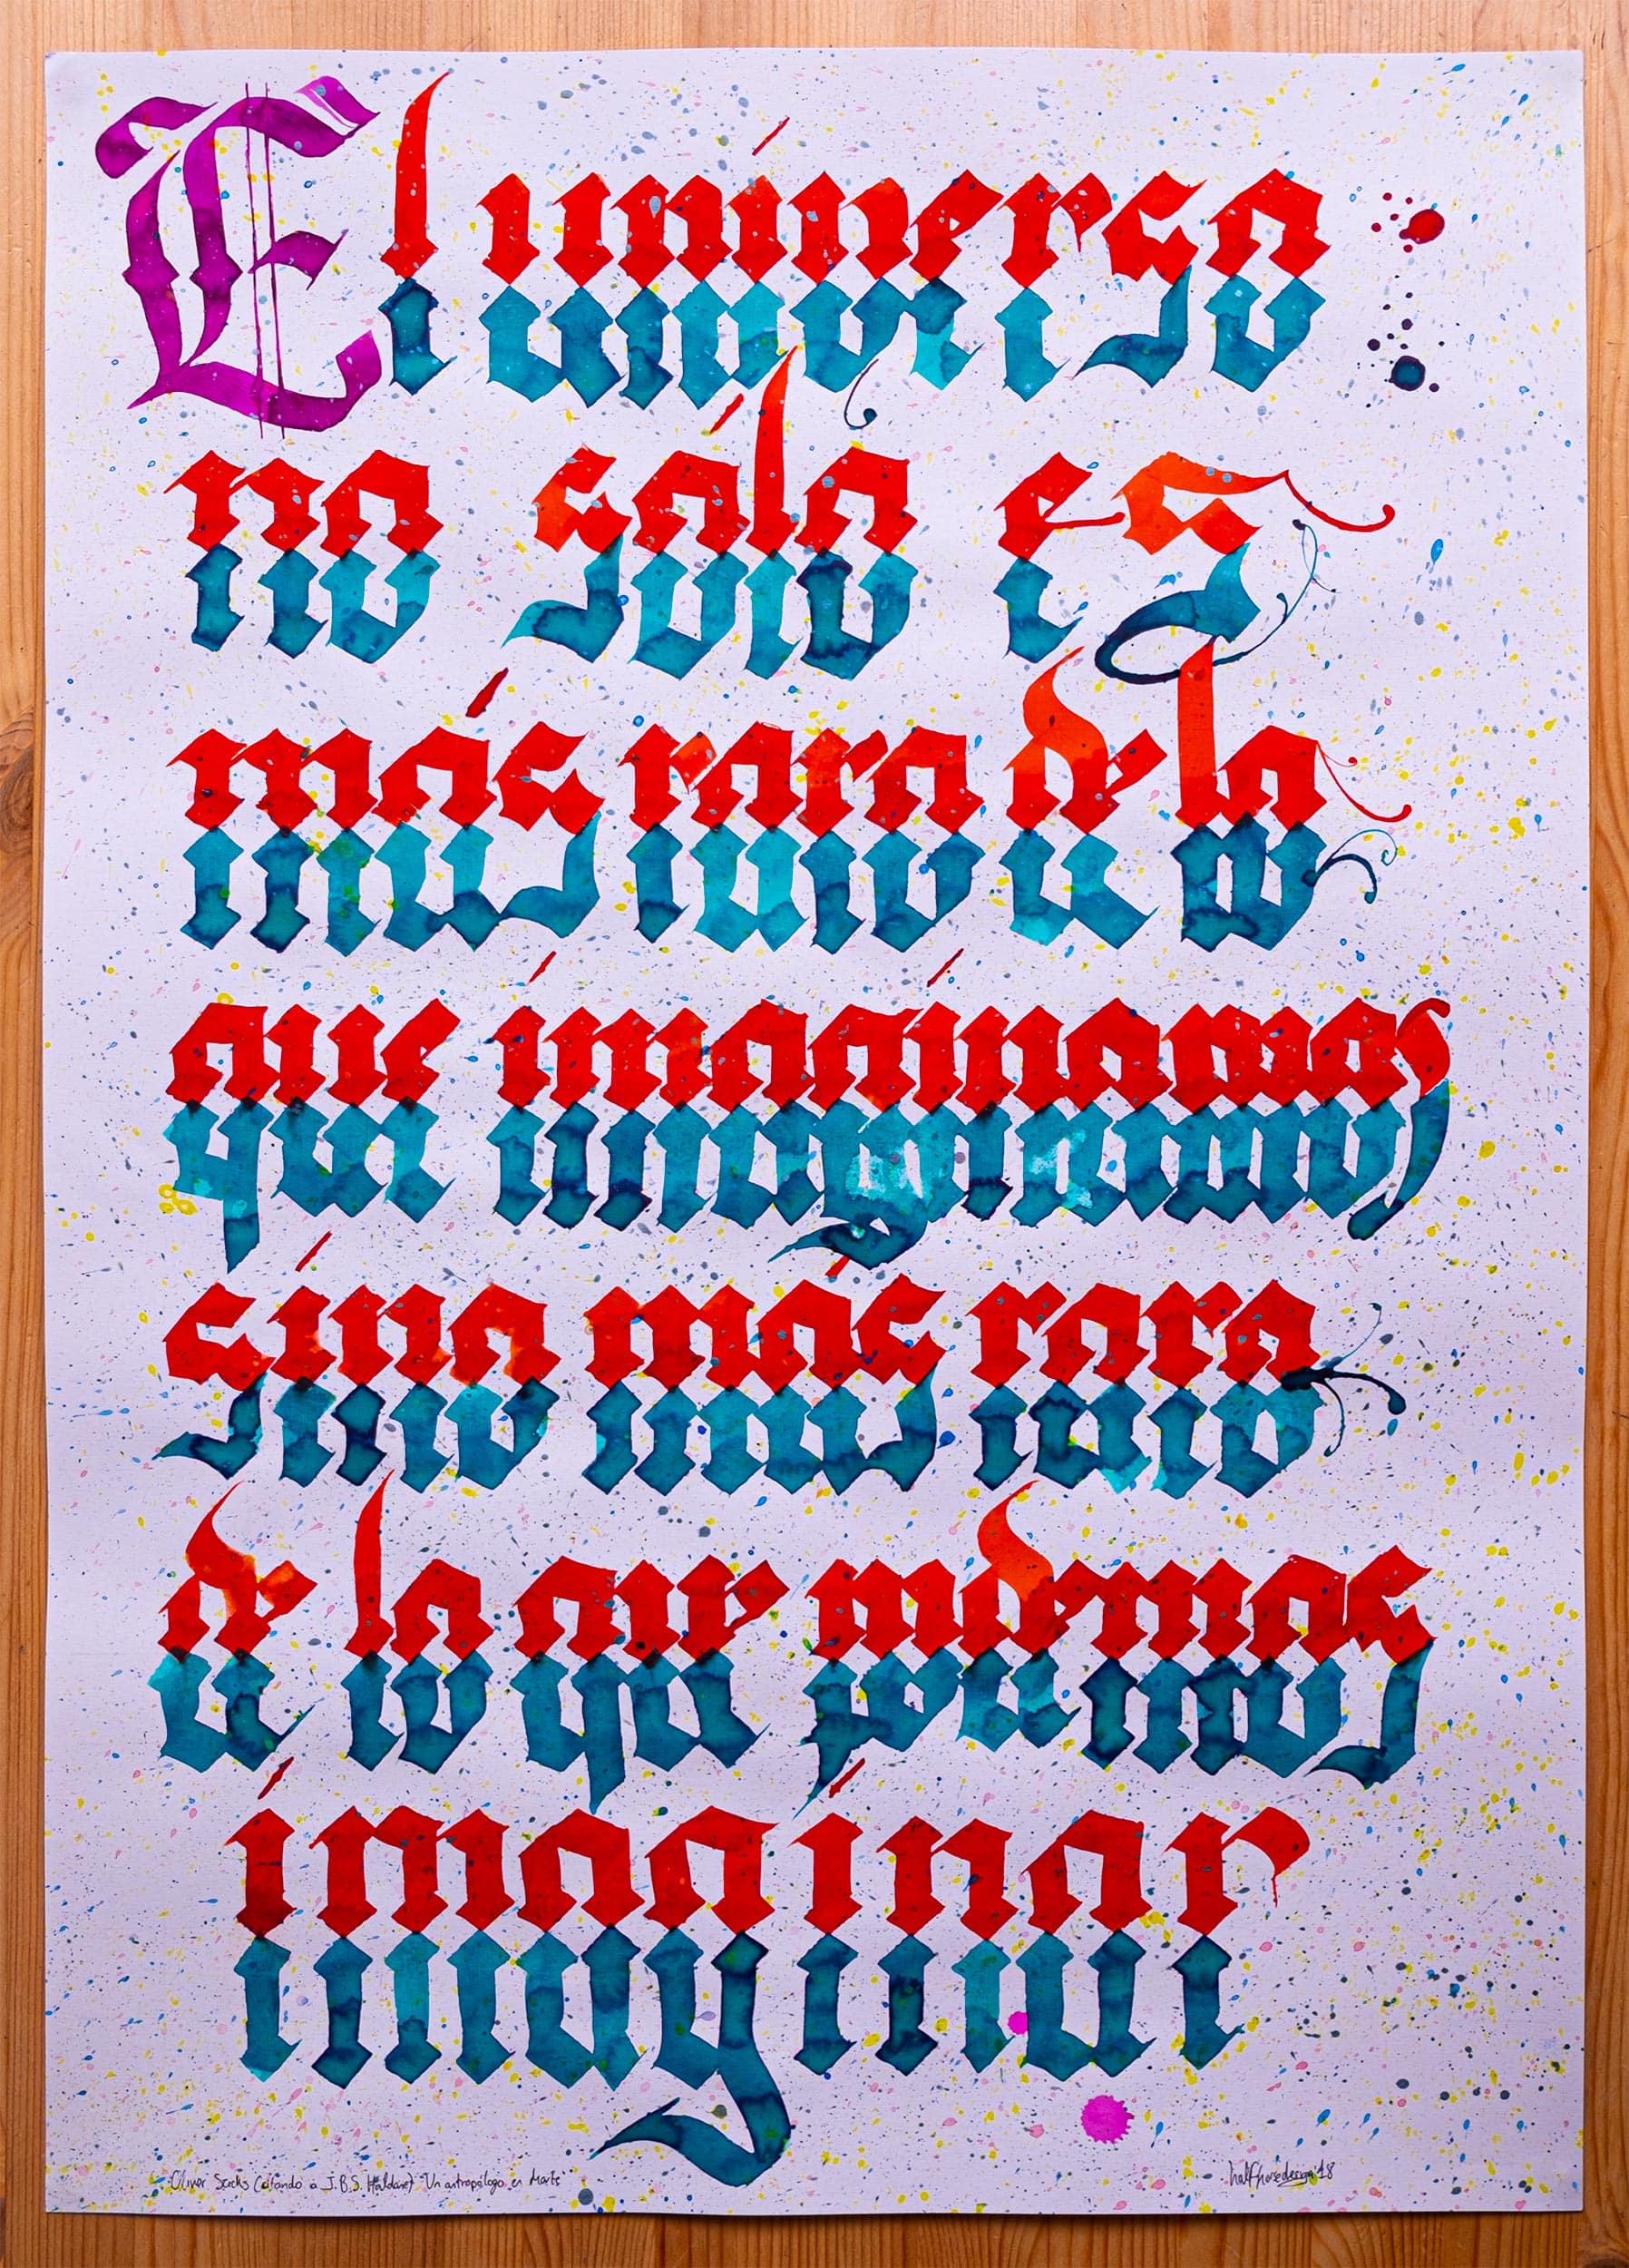 El universo
no sólo es
más rara de la
que imaginamos
sino más rara
de la que podemos
imaginar
Oliver Sacks (citando a J.B.S. Haldane) Un antropólogo en Marte
halfhorsedesign'18